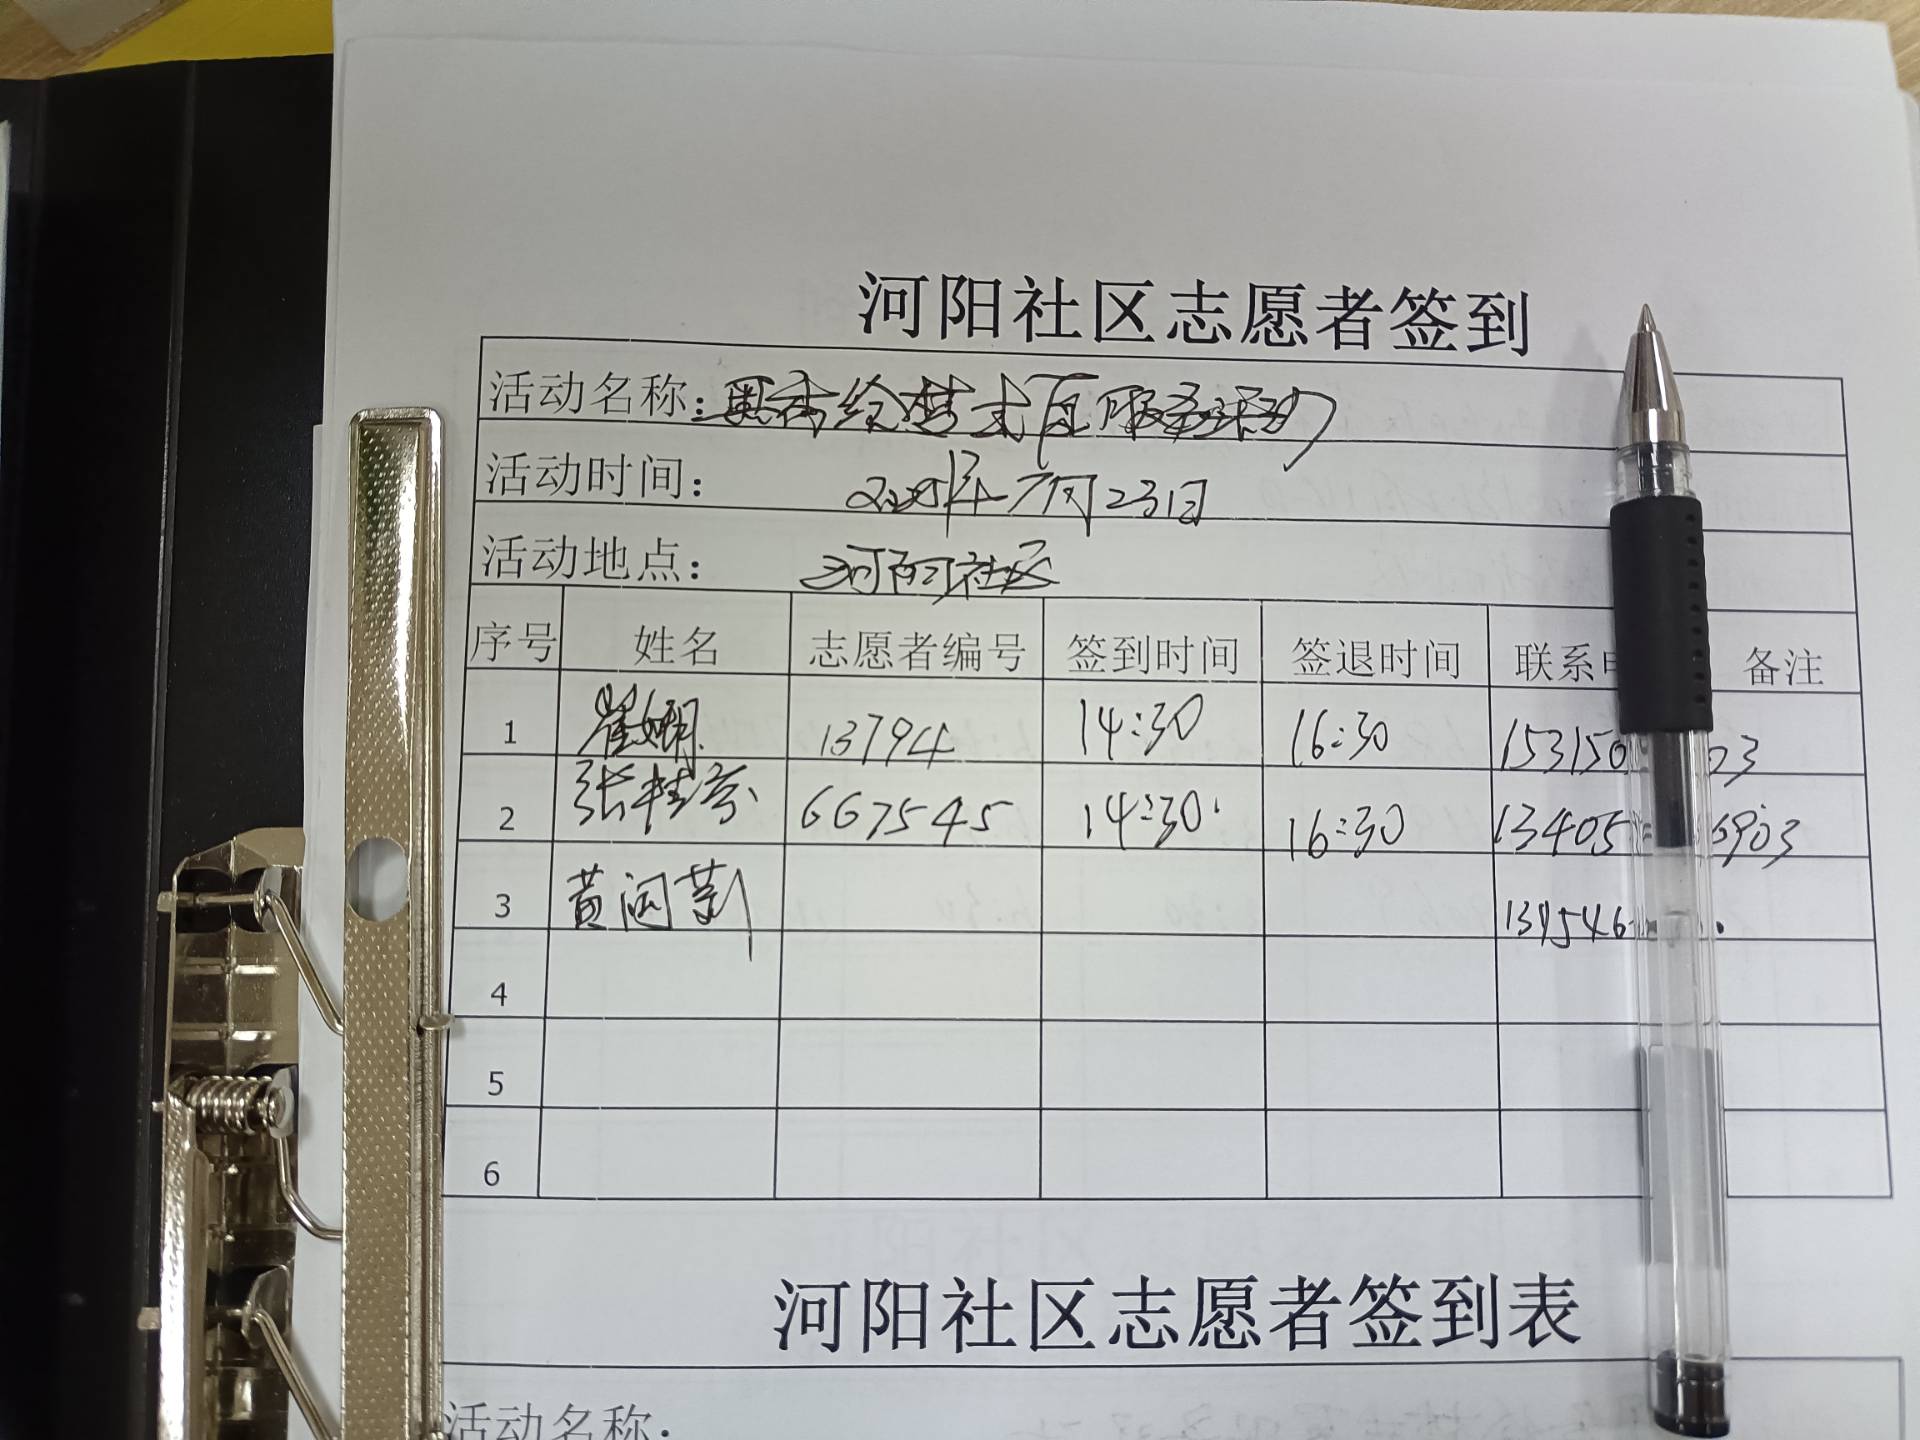 河阳社区志愿者签到
活动名称：墨香绘梦志愿服务活动
活动时间： 2025年7月23日
活动地点： 河阳社区
序号 姓名 志愿者编号 签到时间 签退时间 联系 备注
1 崔娴 13794 14:30 16:30 153150 03
2 张桂芬 667545 14:30 16:30 13405 6903
3 黄润 139546
4
5
6
河阳社区志愿者签到表
活动名称：